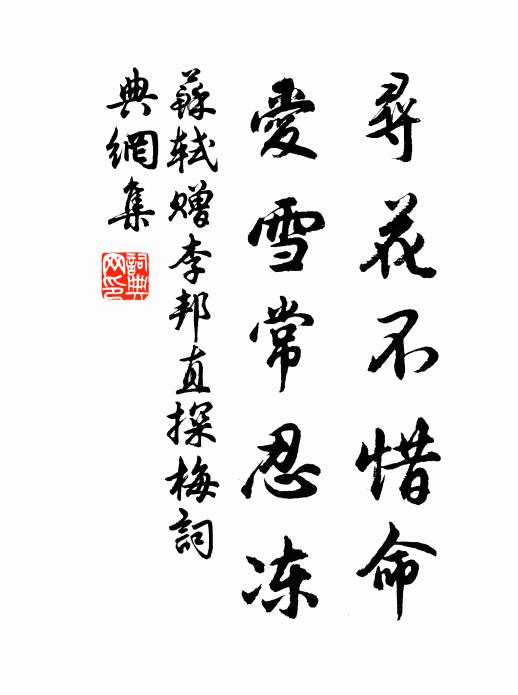 尋花不惜命
愛雪常忍冻
蘇轼赠李邦直探梅詞
典網集
詞典网印